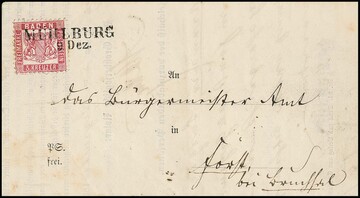 BADEN
3. KREUZER
MÜHLBURG
6 Dez.
An
das Bürgermeister Amt
in
PS.
frei.
Forst,
bei Bruchsal